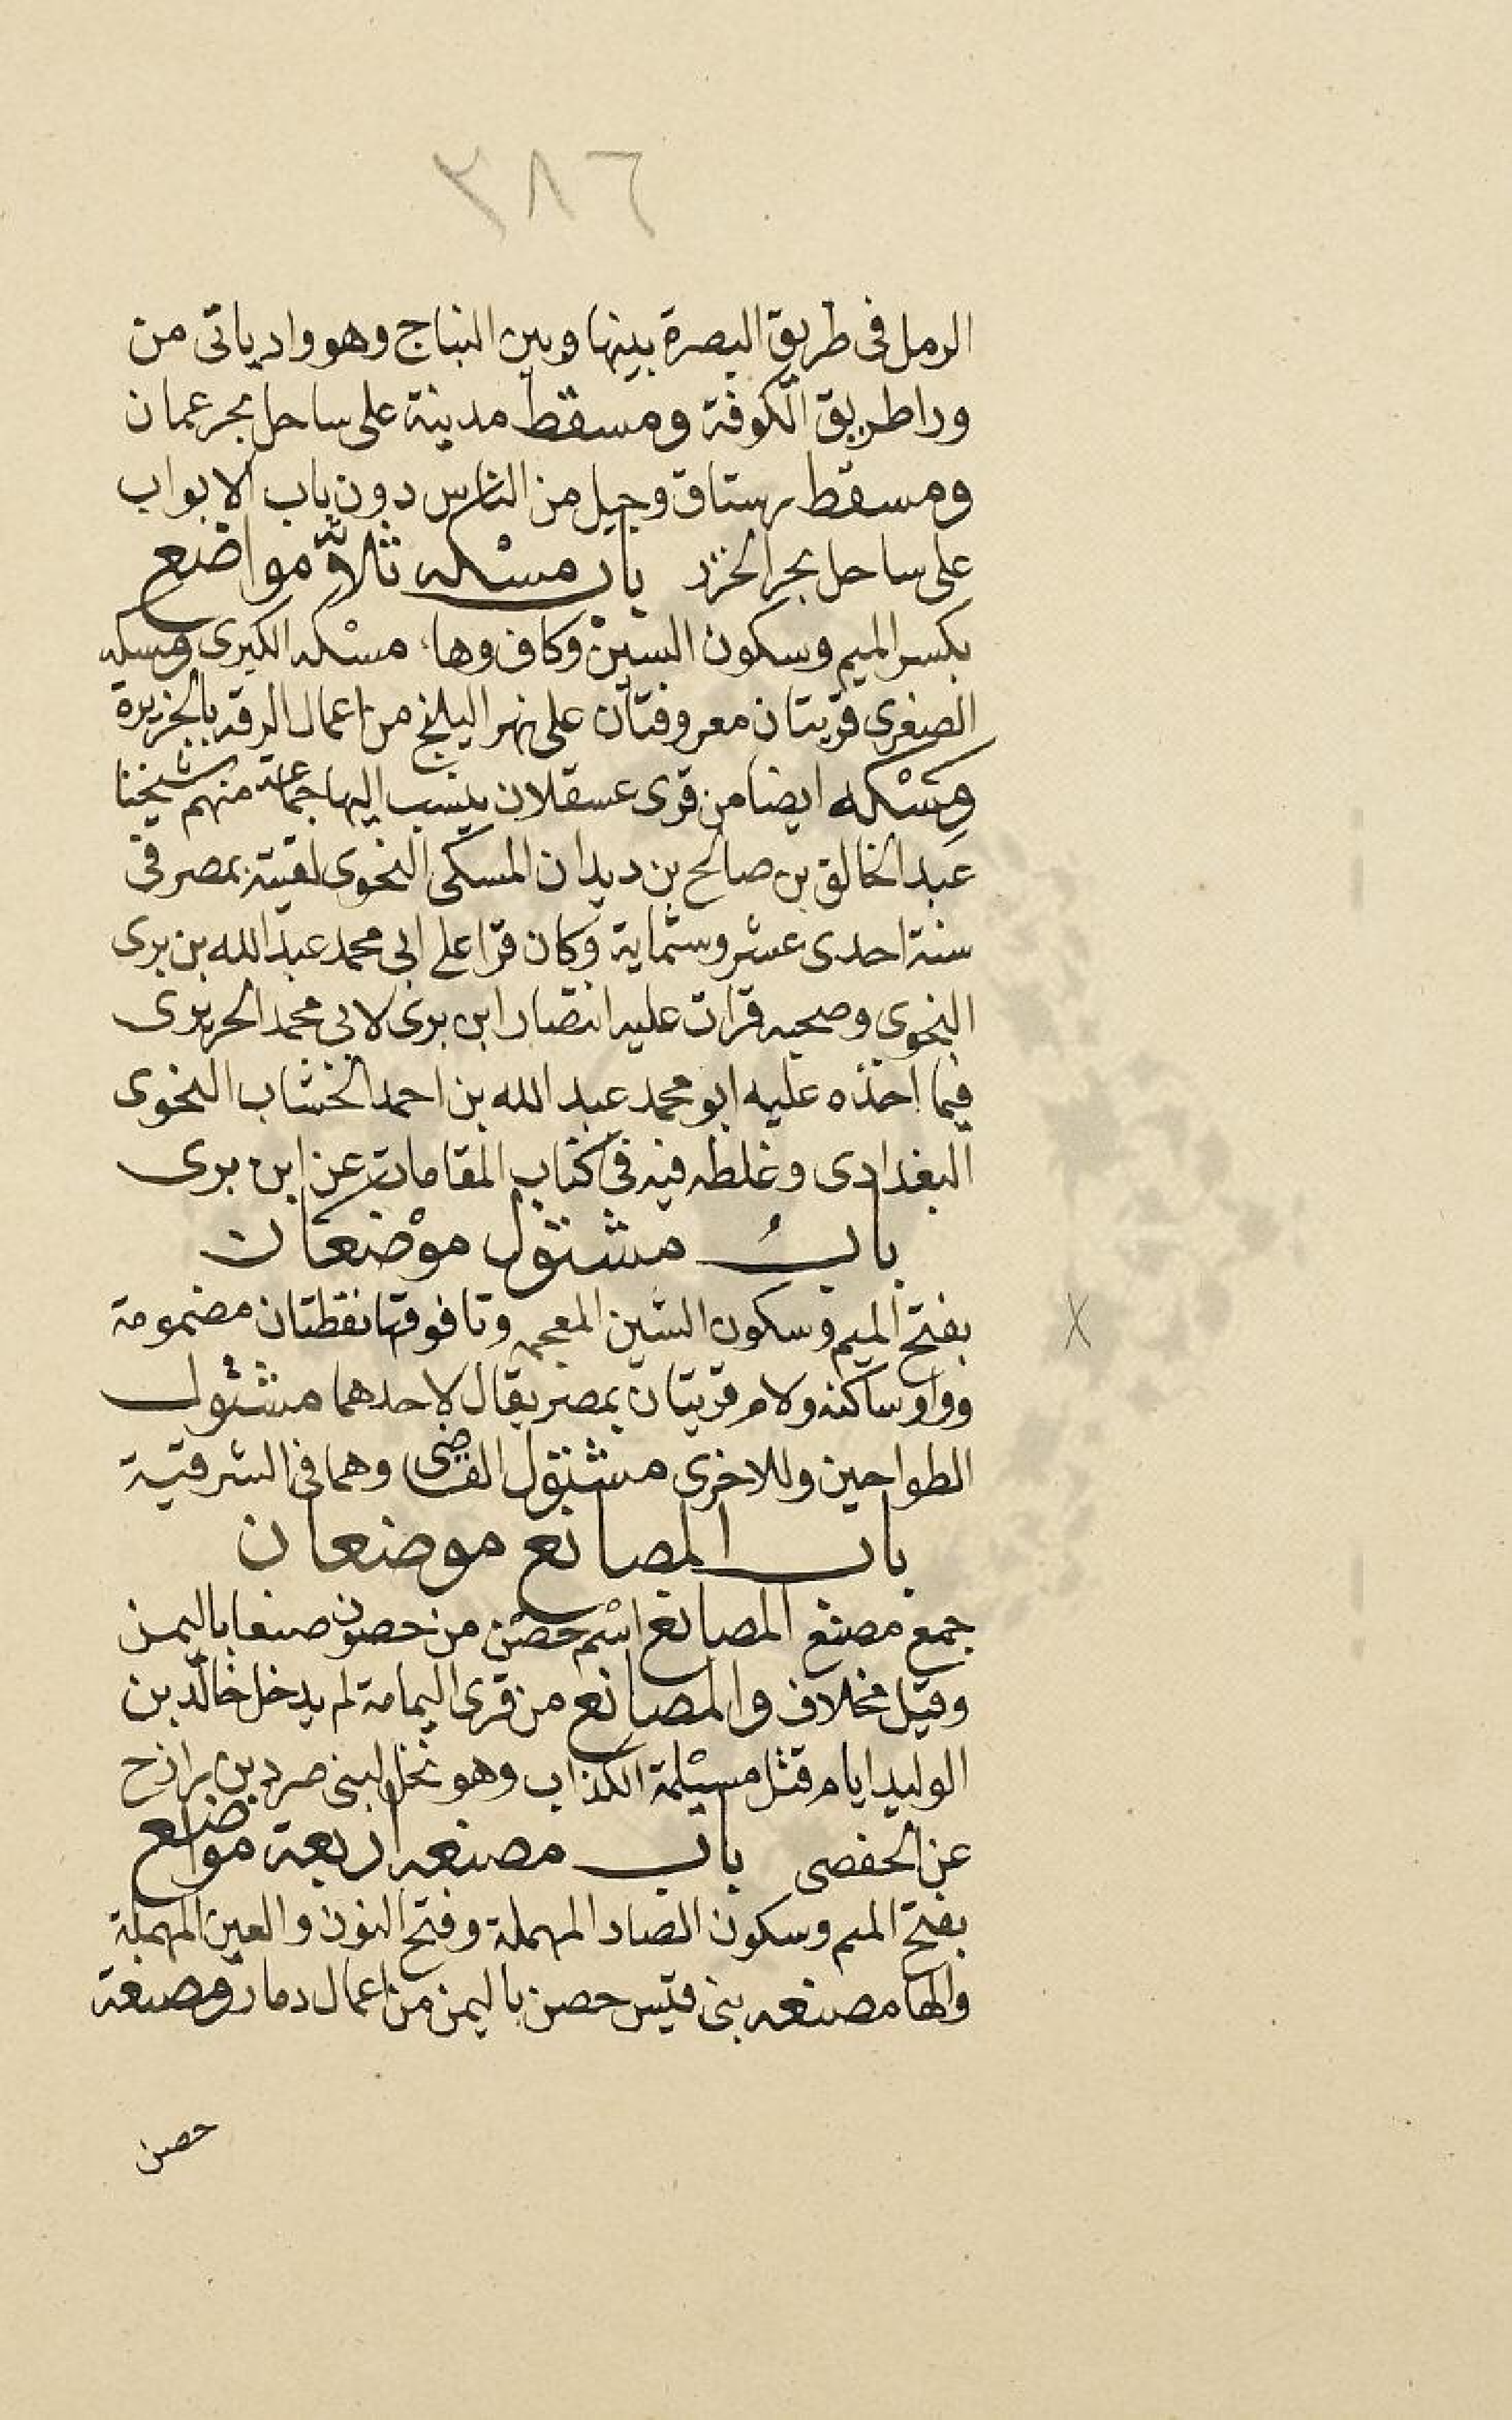 ٣٨٦
الرمل فى طريق البصرة بينها وبين النباج وهو واد ياتى من
ورا طريق الكوفة ومسقط مدينة على ساحل بحر عمان
ومسقط رستاق وجيل من الناس دون باب الابواب
على ساحل بحر الخزر باب مسْكه ثلاثة مواضع
بكسر الميم وسكون السين وكاف وهاء مسْكه الكبرى ومسكه
الصغرى قريتان معروفتان على نهر البليخ من اعمال الرقة بالجزيرة
ومِسْكه ايضا من قرى عسقلان ينسب اليها جماعة منهم شيخنا
عبد الخالق بن صالح بن ديدان المسكى النحوى لقيته بمصر فى
سنة احدى عشر وستماية وكان قرا على ابى محمد عبد الله بن برى
النحوى وصحبه قرات عليه انتصار ابن برى لابى محمد الحريرى
فيما اخذه عليه ابو محمد عبد الله بن احمد الخشاب النحوى
البغدادى وغلطه فيه فى كتاب المقامات عن ابن برى
بابُ مشتول موْضعان
بفتح الميم وسكون الشين المعجمه وتا فوقها نقطتان مضمومة
وواو ساكنه ولام قريتان بمصر يقال لاحدهما مشتول
الطواحين وللاخرى مشتول القاضى وهما فى الشرقية
باب المصانع موضعان
جمع مصنع المصانع اسْم حصن من حصون صنعا باليمن
وقيل مخلاف والمصانع من قرى اليمامة لم يدخل خالد بن
الوليد ايام قتل مسيْلمة الكذاب وهو نخل لبنى صرد بن رازح
عن الحفصى باب مصنعه اربعة مواضع
بفتح الميم وسكون الصاد المهملة وفتح النون والعين المهملة
والها مصنعه بنى قيس حصن باليمن من اعمال دمار ومصنعة
حصن